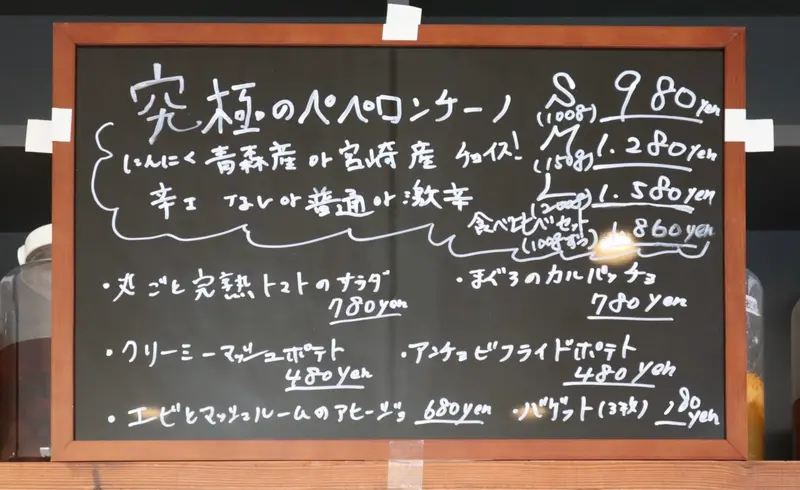 究極のペペロンチーノ
S (100g) 980yen
M (150g) 1.280yen
L (200g) 1.580yen
にんにく 青森産 or 宮崎産 チョイス!
辛さ なし or 普通 or 激辛
食べ比べセット (100gずつ) 1.860yen
・丸ごと完熟トマトのサラダ 780yen
・まぐろのカルパッチョ 780yen
・クリーミーマッシュポテト 480yen
・アンチョビフライドポテト 480yen
・エビとマッシュルームのアヒージョ 680yen
・バゲット(3枚) 180yen